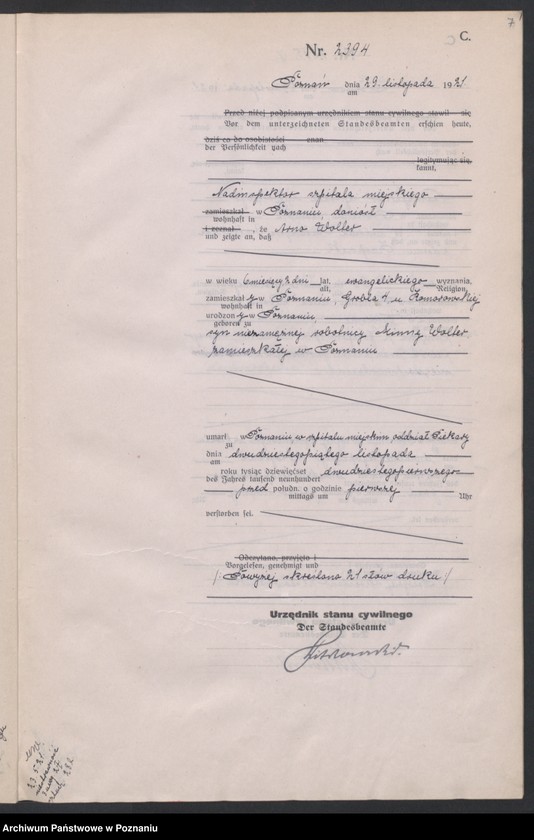 7
C.
Nr. 2394
Poznań dnia 29. listopada 1921.
am
Przed niżej podpisanym urzędnikiem stanu cywilnego stawił się
Vor dem unterzeichneten Standesbeamten erschien heute,
dziś co do osobistości znan
der Persönlichkeit nach
legitymując się,
kannt,
Nadinspektor szpitala miejskiego
zamieszkał w Poznaniu, doniósł
wohnhaft in
i zeznał, że Arno Wolter
und zeigte an, daß
w wieku 6 miesięcy 2 dni lat, ewangelickiego wyznania,
alt, Religion,
zamieszkały w Poznaniu, Grobla 4 u
wohnhaft in
urodzony w Poznaniu
geboren zu
syn niezamężnej robotnicy Minny Wolter,
zamieszkałej w Poznaniu
umarł w Poznaniu, w szpitalu miejskim oddział Piekary
zu
dnia dwudziestegopiątego listopada
am
roku tysiąc dziewięćset dwudziestegopierwszego
des Jahres tausend neunhundert
przed połudn. o godzinie pierwszej
mittags um Uhr
verstorben sei.
Odczytano, przyjęto i
Vorgelesen, genehmigt und
/ Powyżej skreślono 21 słów druku /
Urzędnik stanu cywilnego
Der Standesbeamte
Archiwum Państwowe w Poznaniu